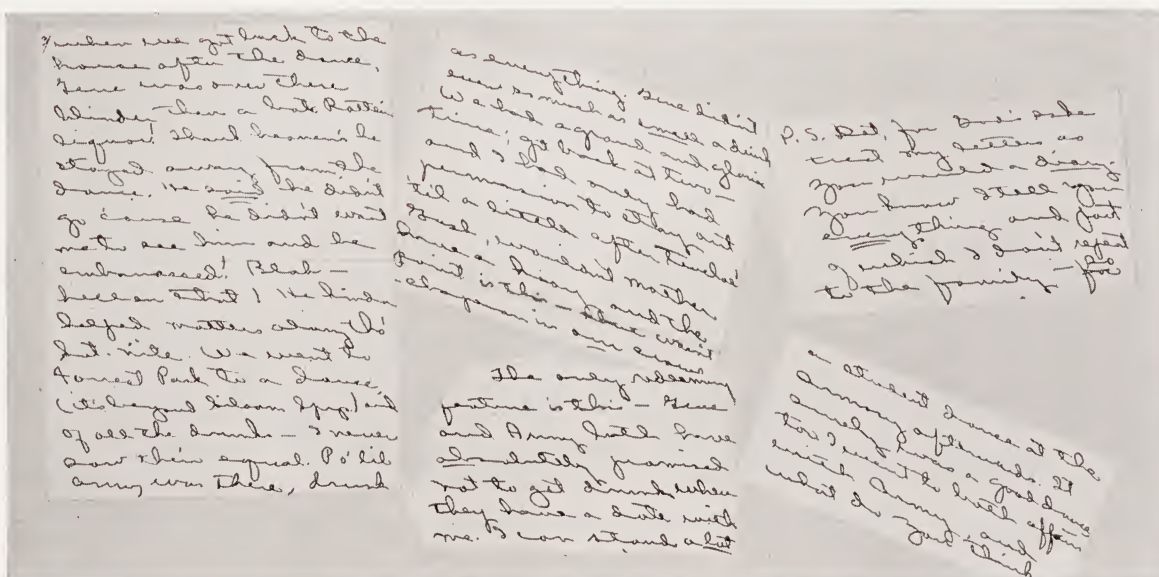 when we got back to the
house after the dance,
Gene was over there
blinder than a bat. Rotten
liquor! Thank heavens he
stayed away from the
dance. He said he didn't
go 'cause he didn't want
me to see him and be
embarrassed! Blah —
here on that! He kinda
helped matters along tho'
Sat. nite. We went to
Forest Park to a dance,
(it's beyond Siloam Spgs.) and
of all the drunks — I never
saw their equal. Po' lil
Army was there, drunk
as everything. Gene didn't
even so much as smell a drink
We had a grand and glorious
time; got back at two —
and I had only had
permission to stay out
'til a little after twelve!
Gosh, wouldn't Mother
have a hissy, and the
point is this — there wasn't
a chaperon in our crowd
The only redeeming
feature is this — Gene
and Army both have
absolutely promised
not to get drunk when
they have a date with
me. I can stand a lot
P.S. Dit, for God's sake
treat my letters as
you would a diary.
You know I tell you
everything and part
of which I don't repeat
to the family — for
a student dance at the
Armory afterwards. It
surely was a good dance
too. I went to both affairs
with Army, and
what do you think